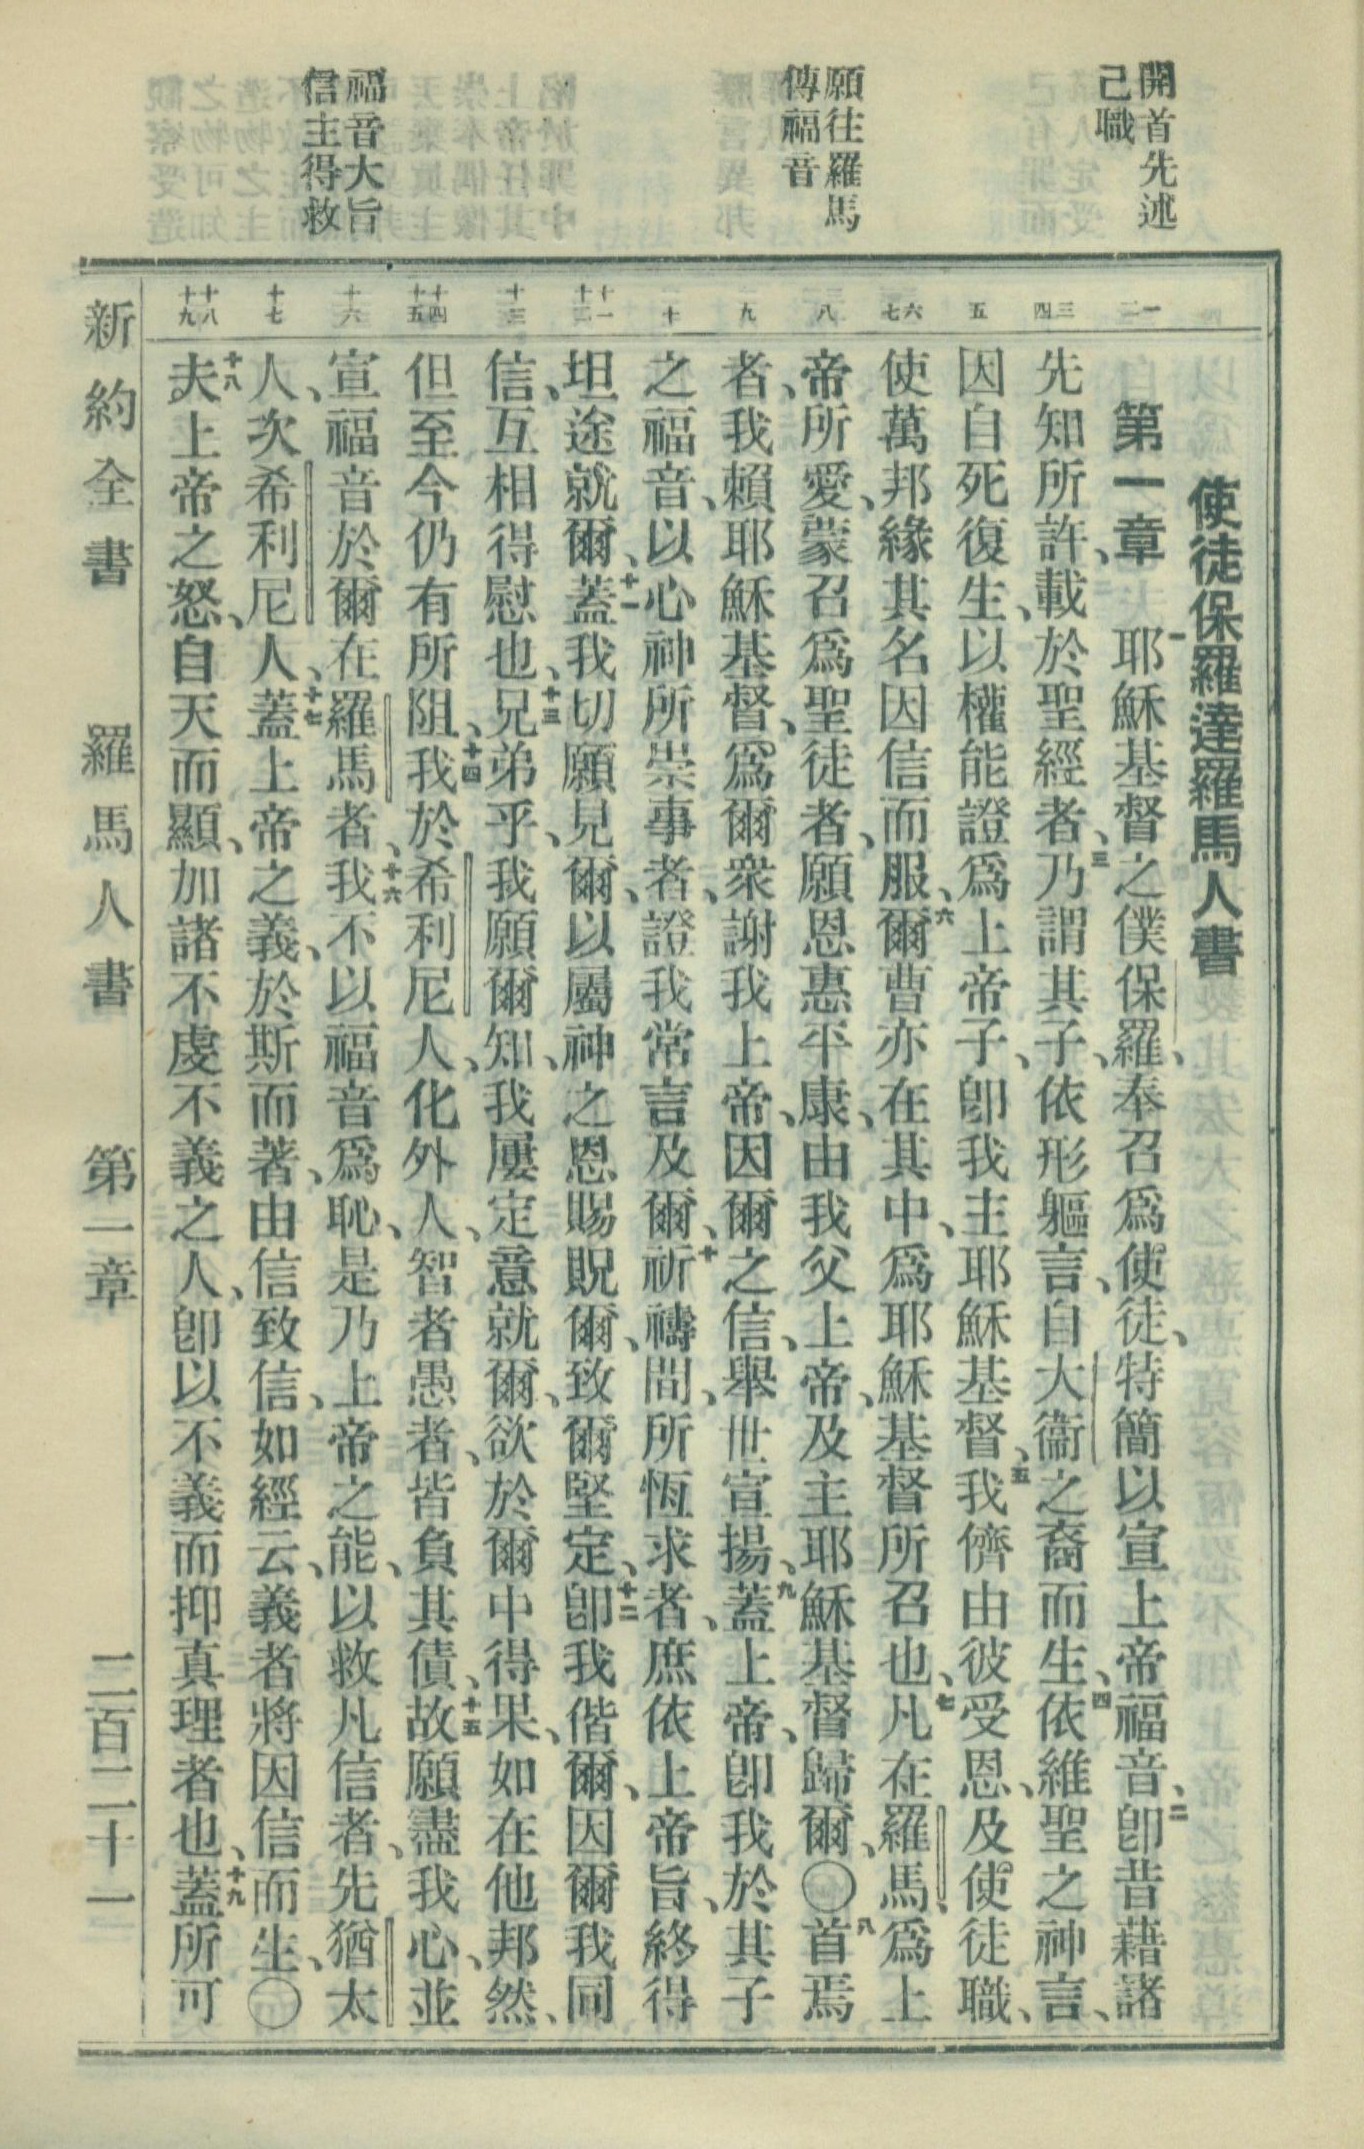 開首先述
己職
願往羅馬
傳福音
福音大旨
信主得救
一
二
三
四
五
六
七
八
九
十
十一
十二
十三
十四
十五
十六
十七
十八
十九
使徒保羅達羅馬人書
第一章 一耶穌基督之僕保羅、奉召爲使徒、特簡以宣上帝福音、二卽昔藉諸
先知所許、載於聖經者、三乃謂其子、依形軀言、自大衞之裔而生、四依維聖之神言、
因自死復生、以權能證爲上帝子、卽我主耶穌基督、五我儕由彼受恩、及使徒職、
使萬邦緣其名因信而服、六爾曹亦在其中、爲耶穌基督所召也、七凡在羅馬、爲上
帝所愛、蒙召爲聖徒者、願恩惠平康、由我父上帝、及主耶穌基督歸爾、〇八首焉
者、我賴耶穌基督、爲爾衆謝我上帝、因爾之信、舉世宣揚、九蓋上帝、卽我於其子
之福音、以心神所崇事者、證我常言及爾、十祈禱間、所恆求者、庶依上帝旨、終得
坦途就爾、十一蓋我切願見爾、以屬神之恩賜貺爾、致爾堅定、十二卽我偕爾、因爾我同
信、互相得慰也、十三兄弟乎、我願爾知、我屢定意就爾、欲於爾中得果、如在他邦然、
但至今仍有所阻、十四我於希利尼人、化外人、智者愚者、皆負其債、十五故願盡我心、並
宣福音於爾在羅馬者、十六我不以福音爲恥、是乃上帝之能、以救凡信者、先猶太
人、次希利尼人、十七蓋上帝之義、於斯而著、由信致信、如經云、義者將因信而生、〇
十八夫上帝之怒、自天而顯、加諸不虔不義之人、卽以不義而抑真理者也、十九蓋所可
新約全書 羅馬人書 第一章 二百二十一